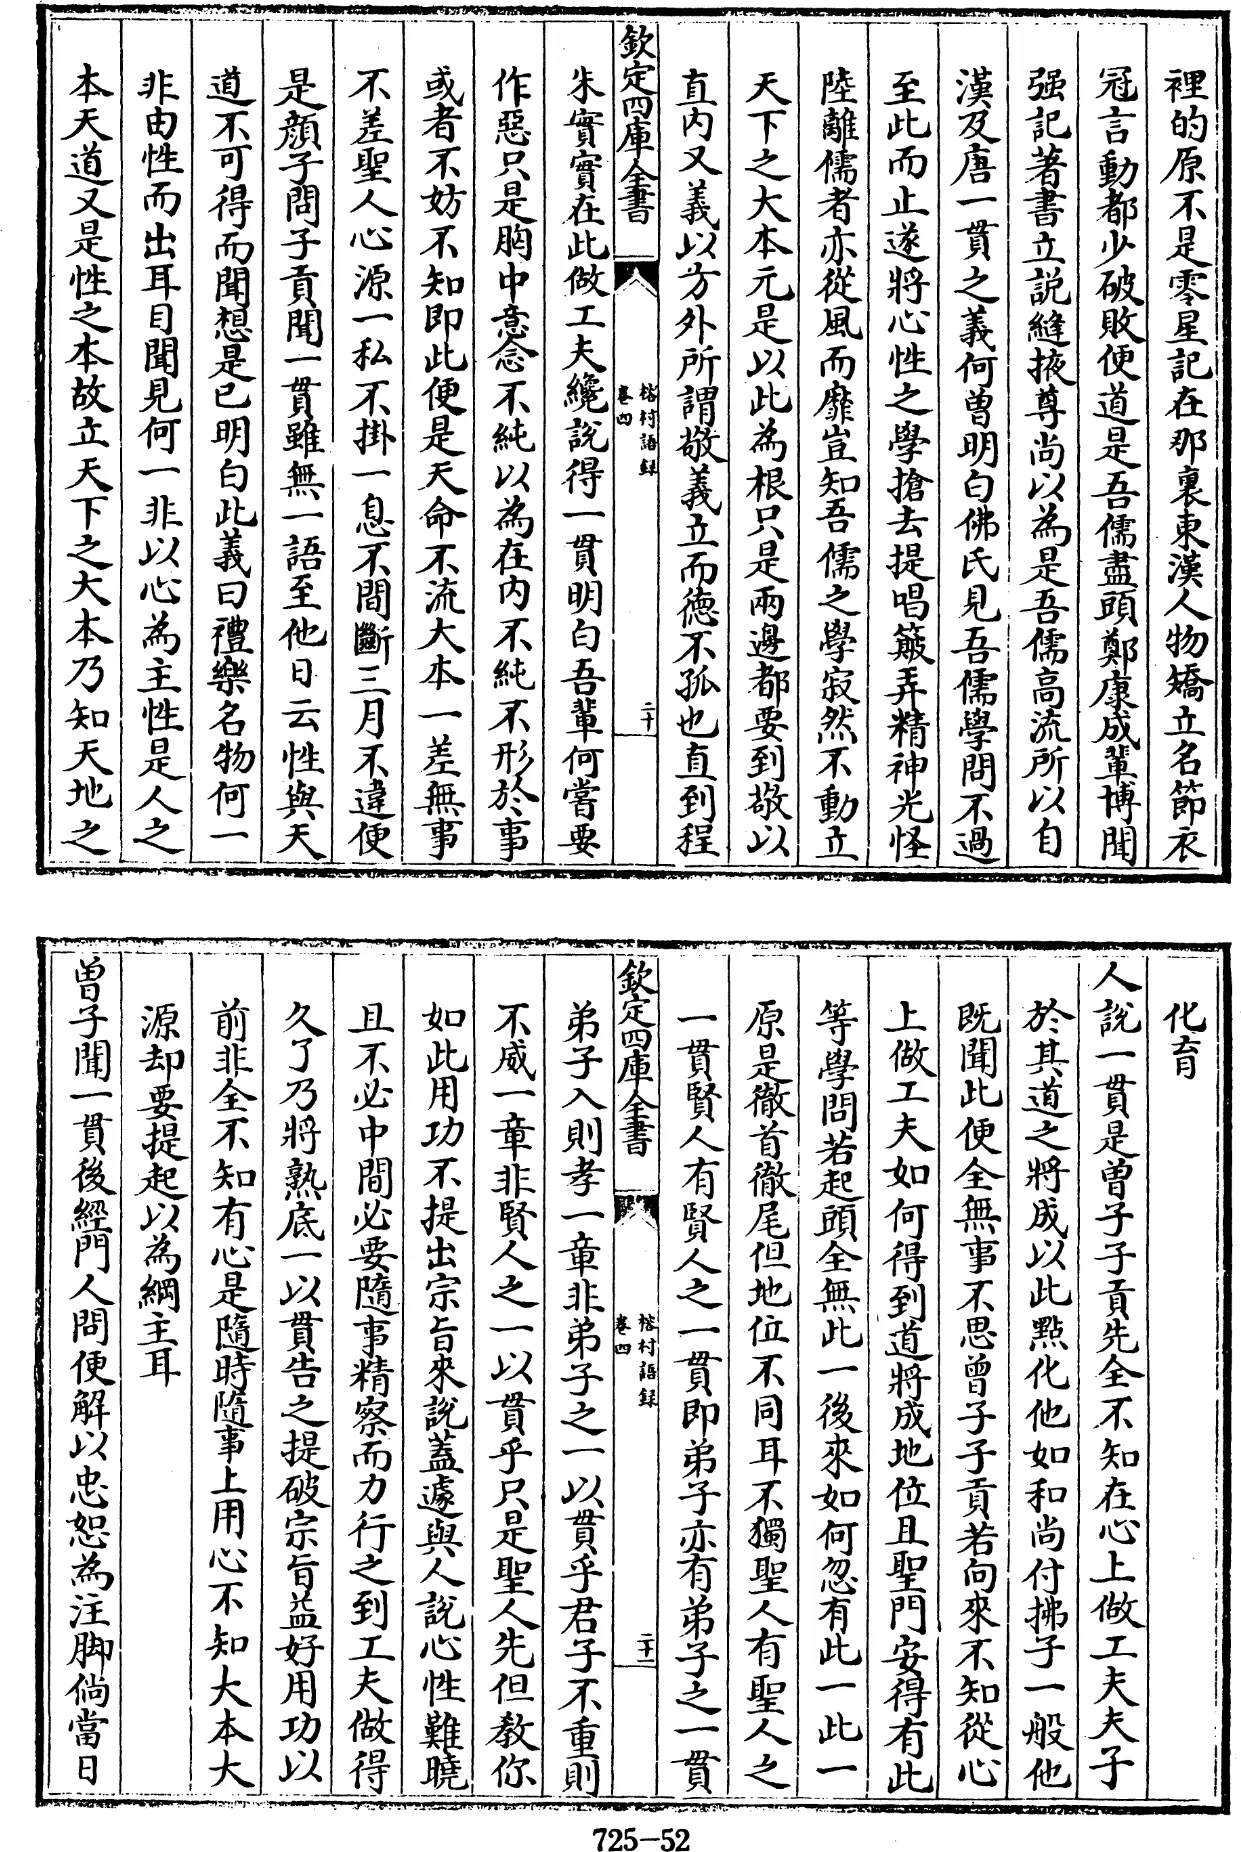 裡的原不是零星記在那裏東漢人物矯立名節衣
冠言動都少破敗便道是吾儒盡頭鄭康成輩博聞
强記著書立説縫掖尊尚以為是吾儒高流所以自
漢及唐一貫之義何曽明白佛氏見吾儒學問不過
至此而止遂將心性之學搶去提唱簸弄精神光怪
陸離儒者亦從風而靡豈知吾儒之學寂然不動立
天下之大本元是以此為根只是兩邊都要到敬以
直内又義以方外所謂敬義立而德不孤也直到程
欽定四庫全書
榕村語録
卷四
二十
朱實實在此做工夫纔説得一貫明白吾輩何嘗要
作惡只是胸中意念不純以為在内不純不形於事
或者不妨不知即此便是天命不流大本一差無事
不差聖人心源一私不掛一息不間斷三月不違便
是顔子問子貢聞一貫雖無一語至他日云性與天
道不可得而聞想是已明白此義曰禮樂名物何一
非由性而出耳目聞見何一非以心為主性是人之
本天道又是性之本故立天下之大本乃知天地之
化育
人説一貫是曽子子貢先全不知在心上做工夫夫子
於其道之將成以此點化他如和尚付拂子一般他
既聞此便全無事不思曾子子貢若向來不知從心
上做工夫如何得到道將成地位且聖門安得有此
等學問若起頭全無此一後來如何忽有此一此一
原是徹首徹尾但地位不同耳不獨聖人有聖人之
一貫賢人有賢人之一貫即弟子亦有弟子之一貫
欽定四庫全書
榕村語録
卷四
二十一
弟子入則孝一章非弟子之一以貫乎君子不重則
不威一章非賢人之一以貫乎只是聖人先但教你
如此用功不提出宗旨來説蓋遽與人説心性難曉
且不必中間必要隨事精察而力行之到工夫做得
久了乃將熟底一以貫告之提破宗旨益好用功以
前非全不知有心是隨時隨事上用心不知大本大
源却要提起以為綱主耳
曽子聞一貫後經門人問便解以忠恕為注脚倘當日
725-52